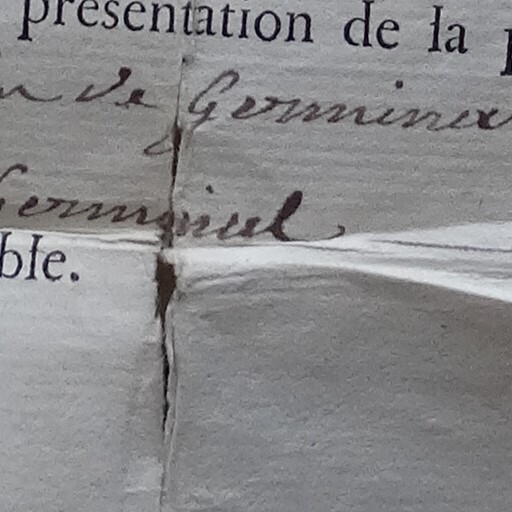 présentation de la
de Germinal
Germinal
ble.